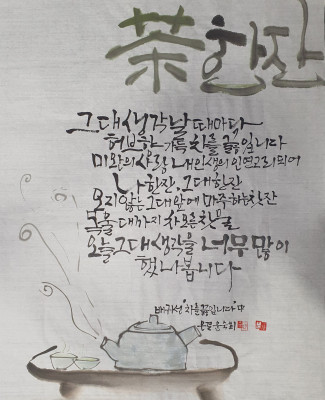 茶 한잔
그대 생각날 때마다
허브향 가득 차를 끓입니다
미완의 사랑, 내 인생의 인연고리
나 한잔, 그대 한잔
오지 않는 그대 앞에 마주하는 찻잔
목울대까지 차오른 찻물
오늘 그대 생각을 너무 많이
했나 봅니다
배귀선 '차를 끓입니다' 中